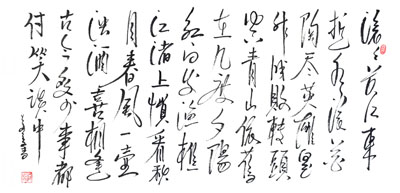 滚々长江東
逝水浪花
淘尽英雄是
非成敗轉頭
空青山依舊
在几度夕陽
紅白发渔樵
江渚上惯看秋
月春風一壶
浊酒喜相逢
古今多少事都
付笑谈中